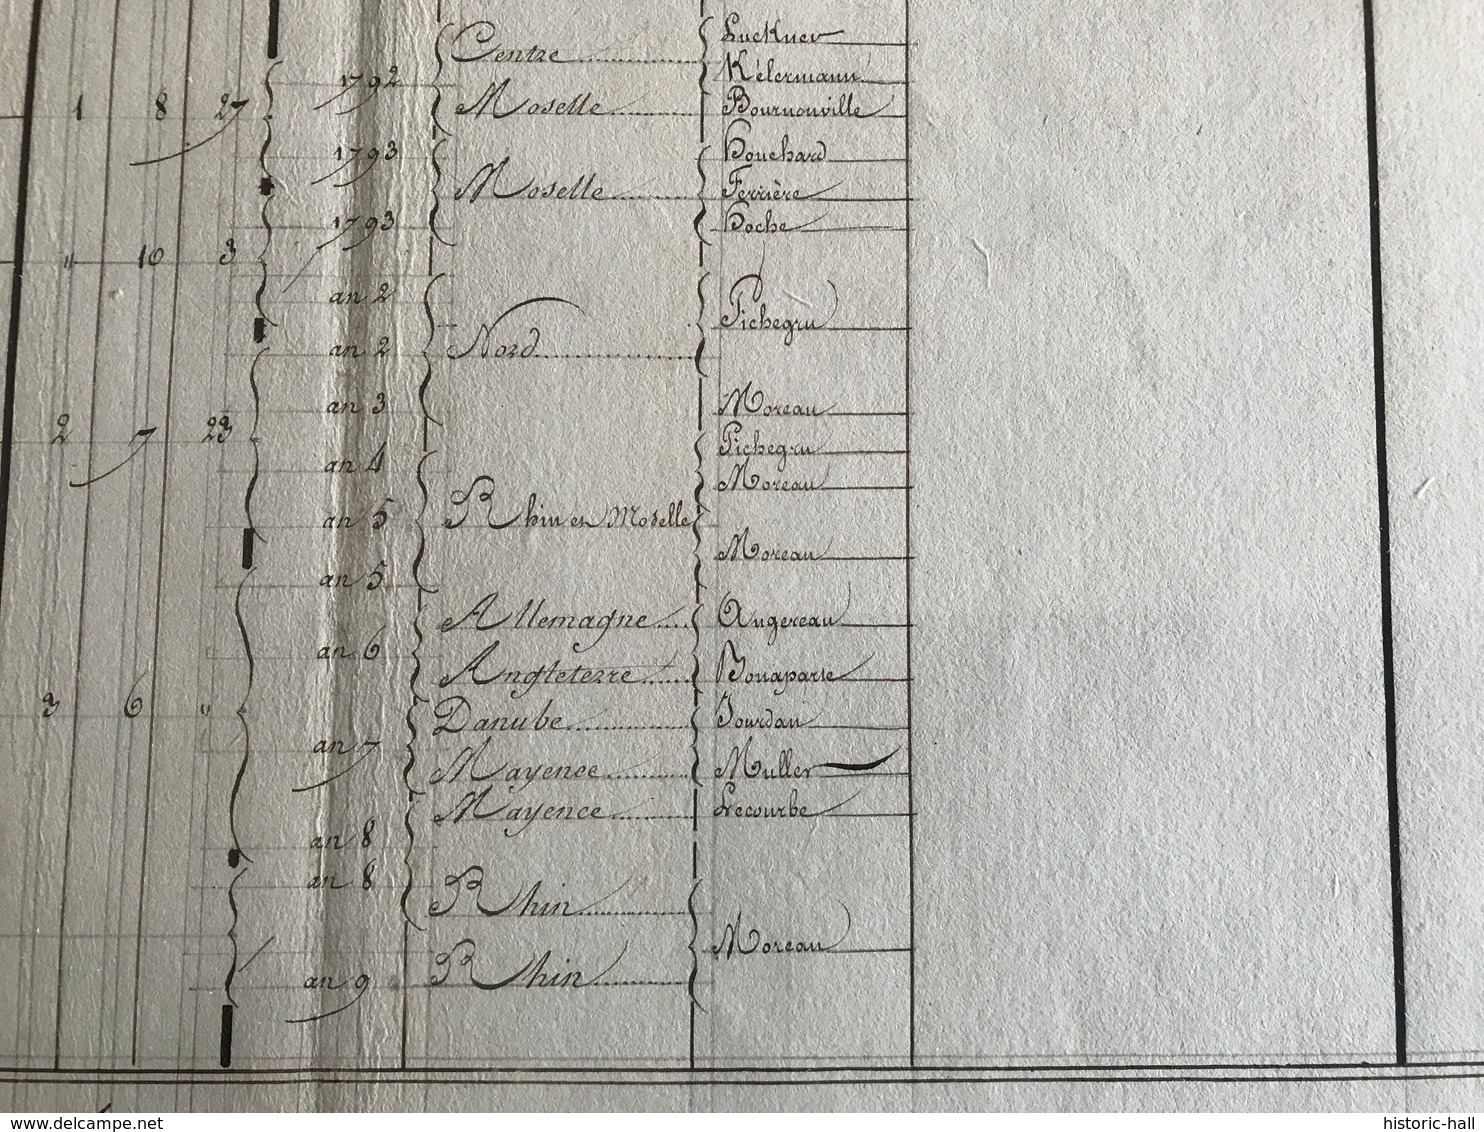 Luckner
Centre
Kélermann
1792
1 8 27
Moselle
Bournonville
1793
Houchard
Moselle
Ferrière
1793
Hoche
" 10 3
an 2
Pichegru
an 2
Nord
an 3
Moreau
2 7 23
Pichegru
an 4
Moreau
an 5
Rhin et Moselle
Moreau
an 5
Allemagne
Augereau
an 6
Angleterre
Bonaparte
3 6 "
Danube
Jourdan
an 7
Mayence
Muller
Mayence
Lecourbe
an 8
an 8
Rhin
Moreau
an 9
Rhin
www.delcampe.net
historic-hall